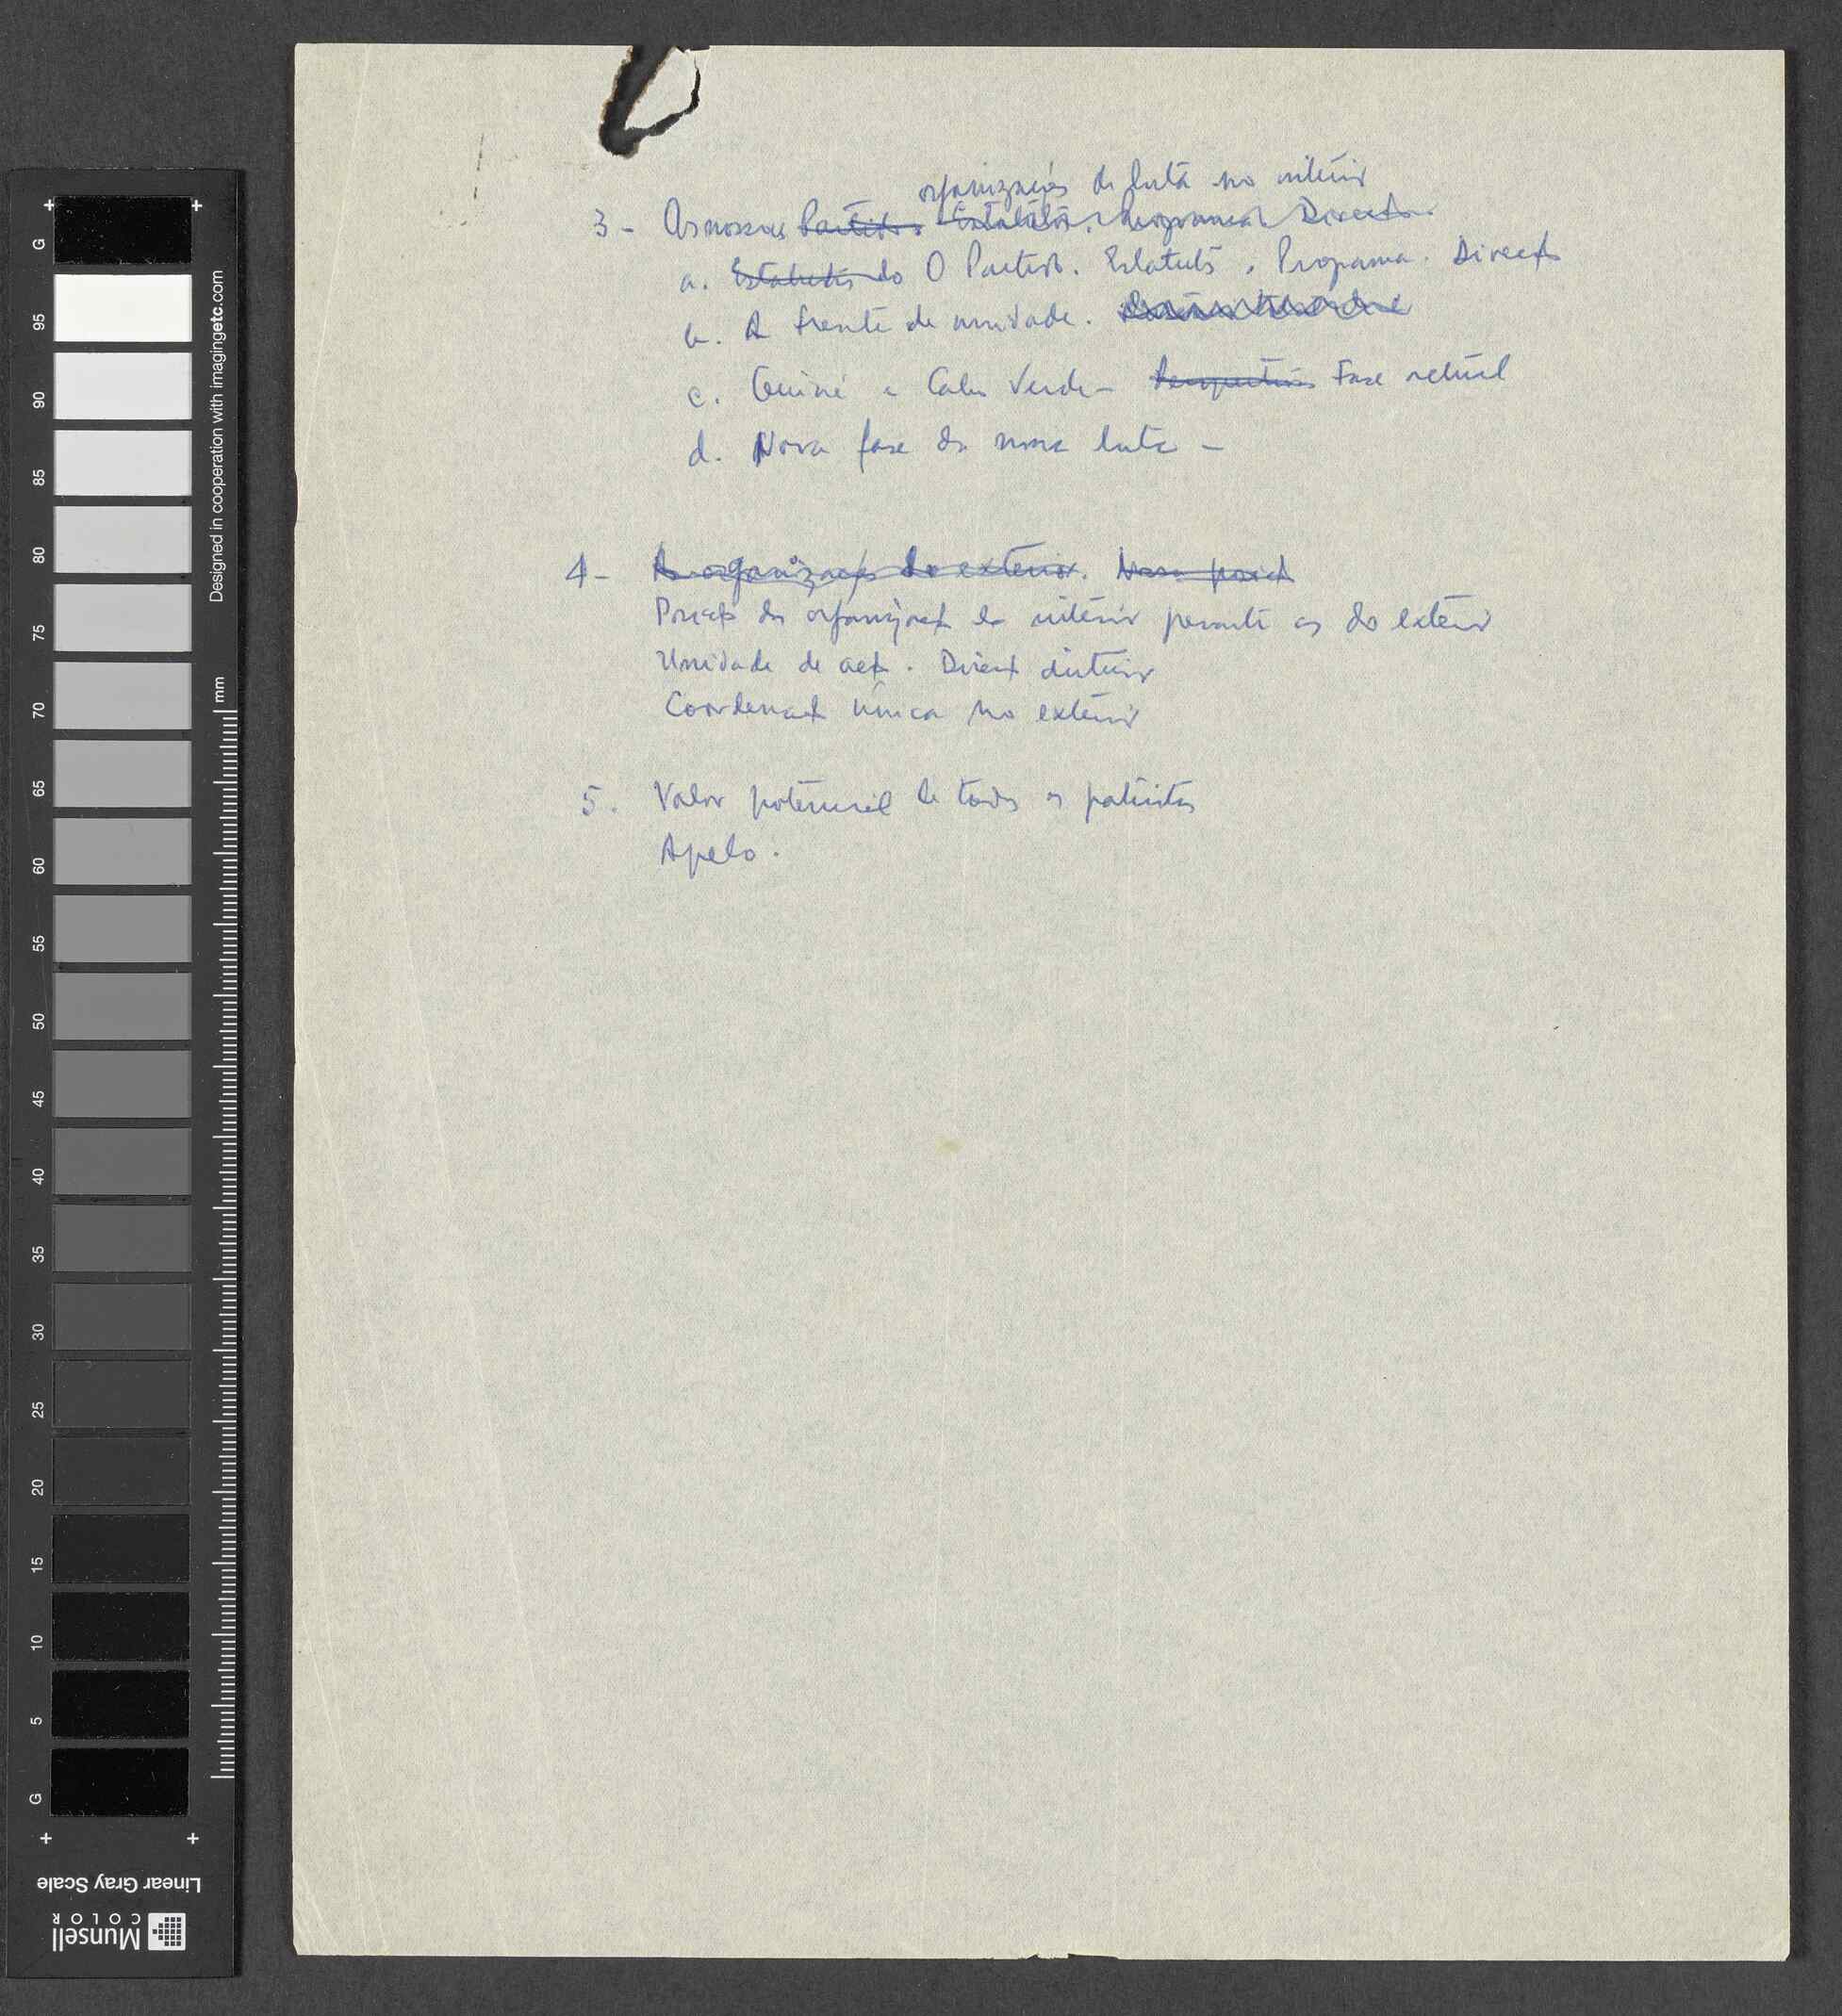 organizações de luta no interior
3 - As nossas Partidos Estatutos. Programa Direcção
a. Estatutos do O Partido. Estatutos. Programa. Direcç
b. A frente de unidade.
c. Guiné e Cabo Verde - Perspectivas Fase actual
d. Nova fase da nossa luta -
4 - As organizações do exterior. Nossa posiç
Posiçã das organizaç do interior perante as do exterior
Unidade de acç. Direcç interior
Coordenaç única no exterior
5. Valor potencial de todos os patriotas
Apelo.
G
95
90
85
80
75
70
65
60
55
50
45
40
35
30
25
20
15
10
5
G
Designed in cooperation with imagingetc.com
mm
Linear Gray Scale
Munsell
COLOR